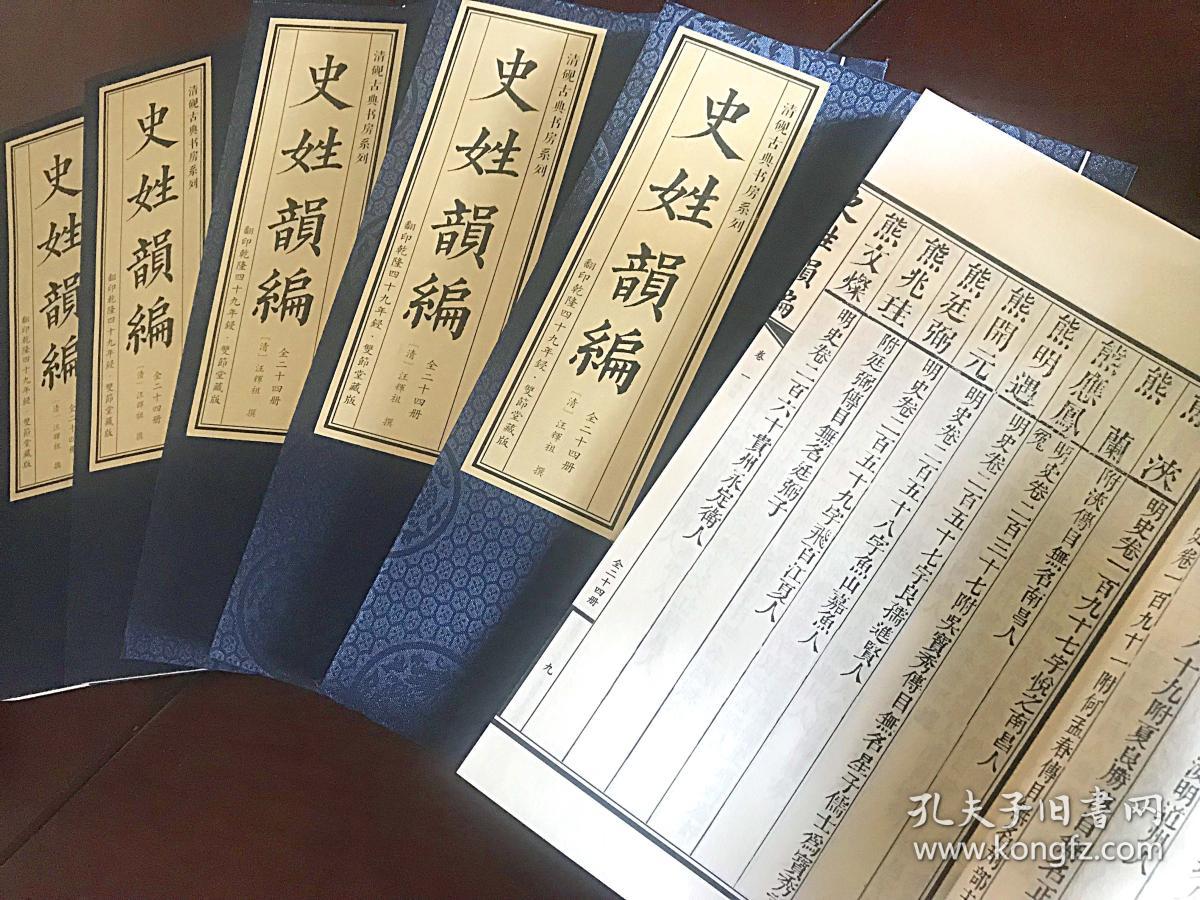 清硯古典书房系列
史姓韻編
全二十四册
〔清〕汪輝祖 撰
翻印乾隆四十九年鋟·雙節堂藏版
清硯古典书房系列
史姓韻編
全二十四册
〔清〕汪輝祖 撰
翻印乾隆四十九年鋟·雙節堂藏版
清硯古典书房系列
史姓韻編
翻印乾隆四十九年鋟·雙節堂藏版
清硯古典书房系列
史姓韻編
全二十四册
〔清〕汪輝祖 撰
翻印乾隆四十九年鋟·雙節堂藏版
史姓韻編
〔清〕汪輝祖 撰
翻印乾隆四十九年鋟·雙節堂藏版
浹 明史卷一百九十一附何孟春傳目無名
熊蘭 明史卷一百九十七字悅之南昌人
熊應鳳 附浹傳目無名南昌人
熊明遇 明史卷二百五十七字良孺進賢人
熊開元 明史卷二百五十八字魚山嘉魚人
熊廷弼 明史卷二百五十九字飛白江夏人
熊兆珪 附廷弼傳目無名廷弼子
熊文燦 明史卷二百六十貴州永定衛人
史姓韻編
卷一
全二十四册
九
孔夫子旧书网
www.kongfz.com